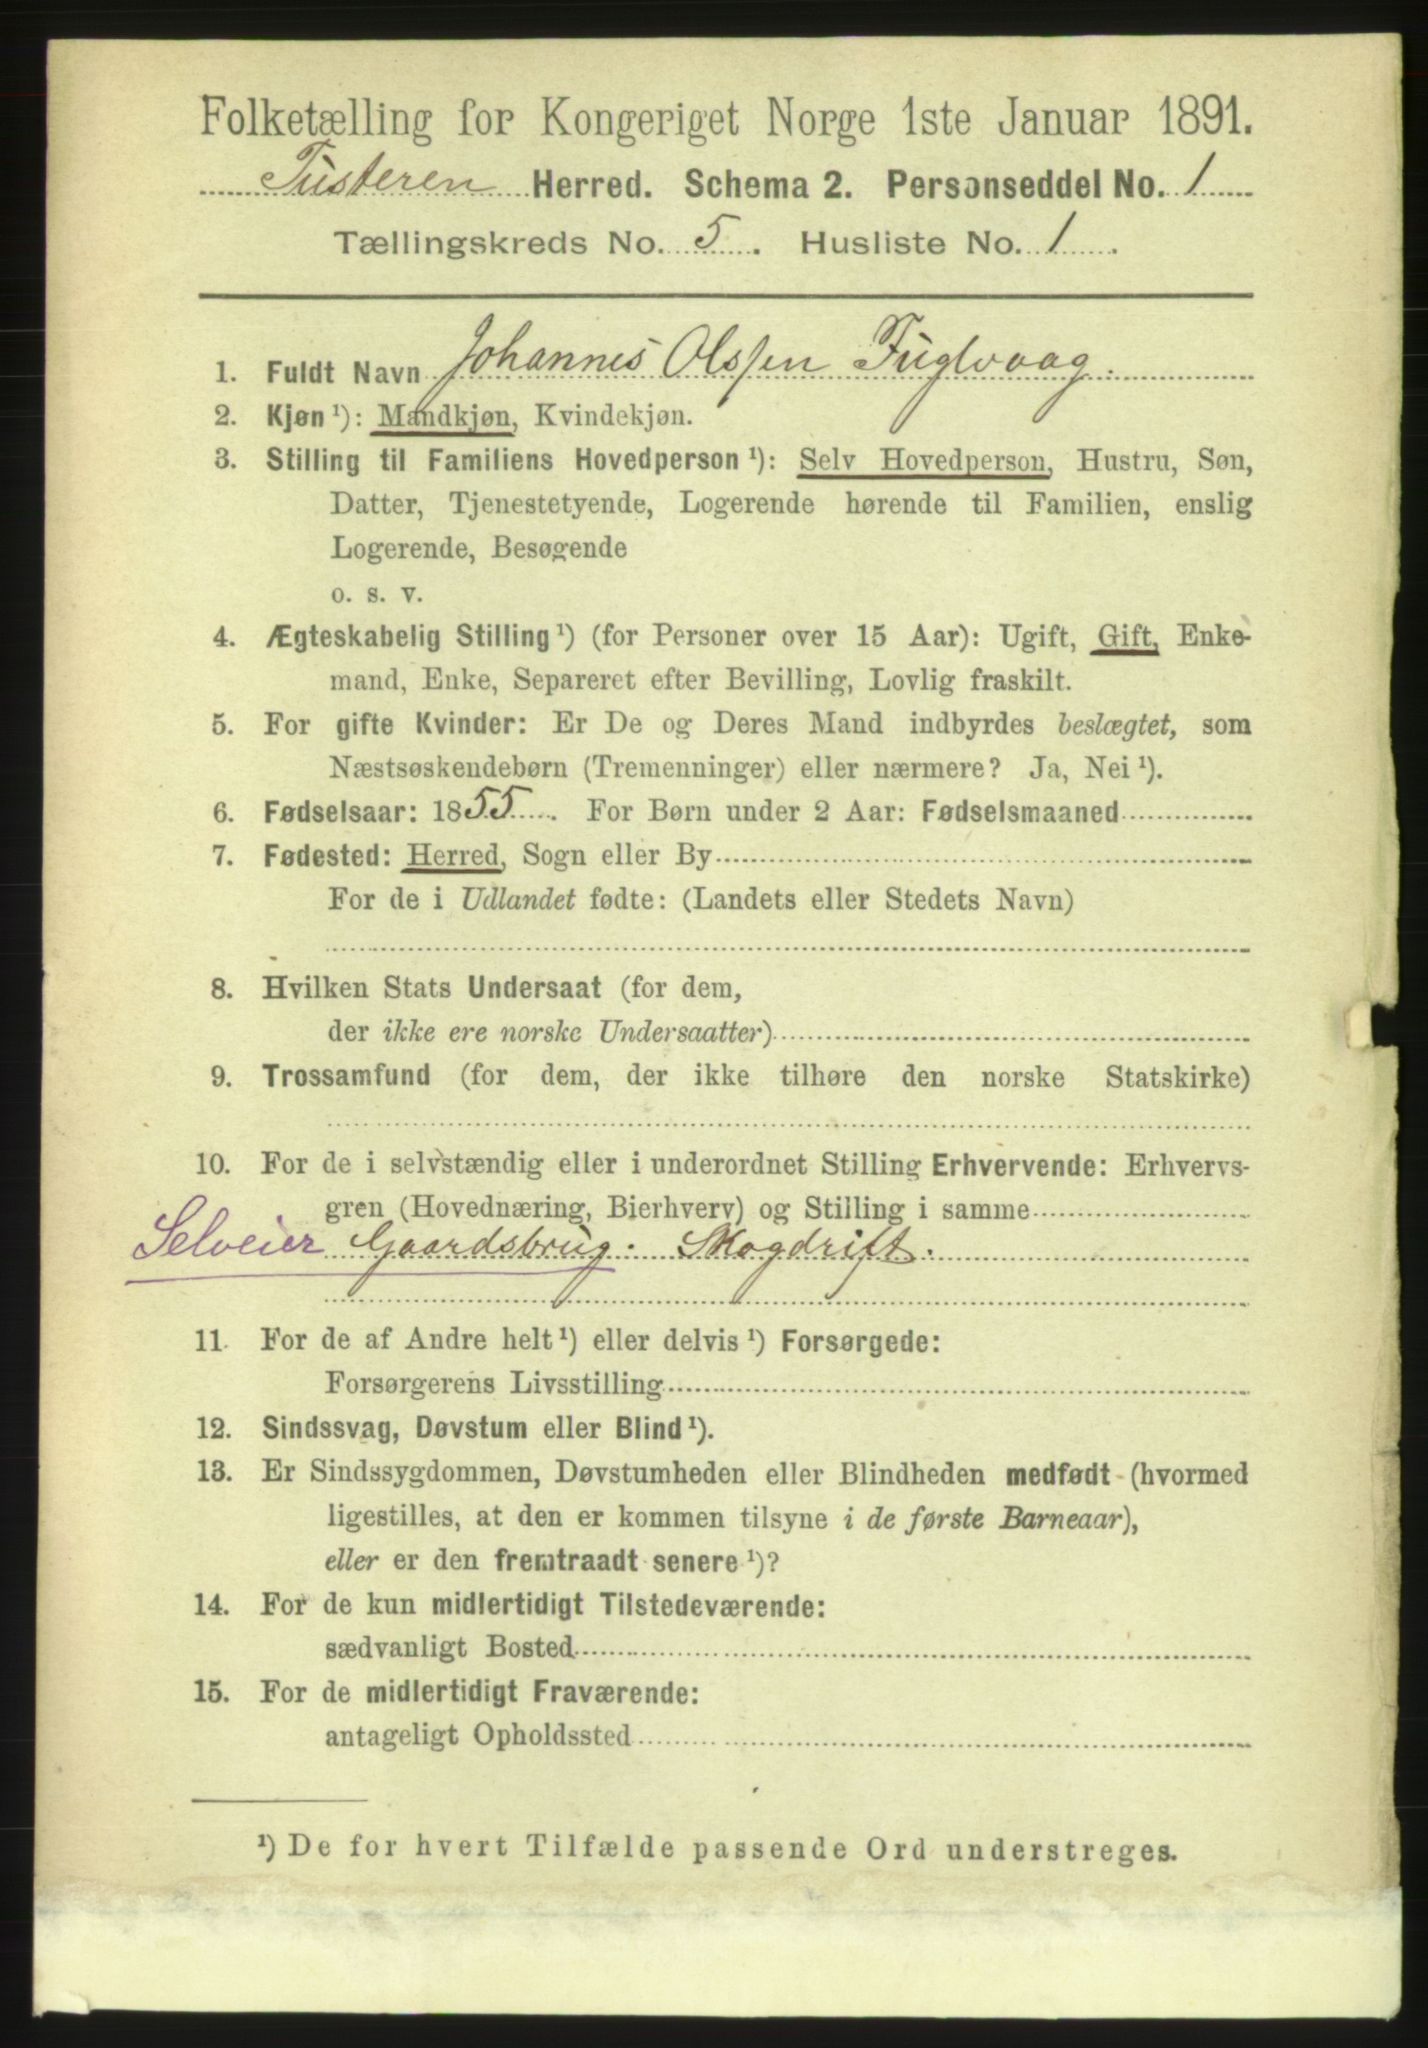 Folketælling for Kongeriget Norge 1ste Januar 1891.
Tusteren Herred. Schema 2. Personseddel No. 1
Tællingskreds No. 5. Husliste No. 1.
1. Fuldt Navn Johannes Olsen Fuglvaag.
2. Kjøn ¹): Mandkjøn, Kvindekjøn.
3. Stilling til Familiens Hovedperson ¹): Selv Hovedperson, Hustru, Søn,
Datter, Tjenestetyende, Logerende hørende til Familien, enslig
Logerende, Besøgende
o. s. v.
4. Ægteskabelig Stilling ¹) (for Personer over 15 Aar): Ugift, Gift, Enke-
mand, Enke, Separeret efter Bevilling, Lovlig fraskilt.
5. For gifte Kvinder: Er De og Deres Mand indbyrdes beslægtet, som
Næstsøskendebørn (Tremenninger) eller nærmere? Ja, Nei ¹).
6. Fødselsaar: 1855. For Børn under 2 Aar: Fødselsmaaned
7. Fødested: Herred, Sogn eller By
For de i Udlandet fødte: (Landets eller Stedets Navn)
8. Hvilken Stats Undersaat (for dem,
der ikke ere norske Undersaatter)
9. Trossamfund (for dem, der ikke tilhøre den norske Statskirke)
10. For de i selvstændig eller i underordnet Stilling Erhvervende: Erhvervs-
gren (Hovednæring, Bierhverv) og Stilling i samme
Selveier Gaardsbrug. Skogdrift.
11. For de af Andre helt ¹) eller delvis ¹) Forsørgede:
Forsørgerens Livsstilling
12. Sindssvag, Døvstum eller Blind ¹).
13. Er Sindssygdommen, Døvstumheden eller Blindheden medfødt (hvormed
ligestilles, at den er kommen tilsyne i de første Barneaar),
eller er den fremtraadt senere ¹)?
14. For de kun midlertidigt Tilstedeværende:
sædvanligt Bosted
15. For de midlertidigt Fraværende:
antageligt Opholdssted
¹) De for hvert Tilfælde passende Ord understreges.